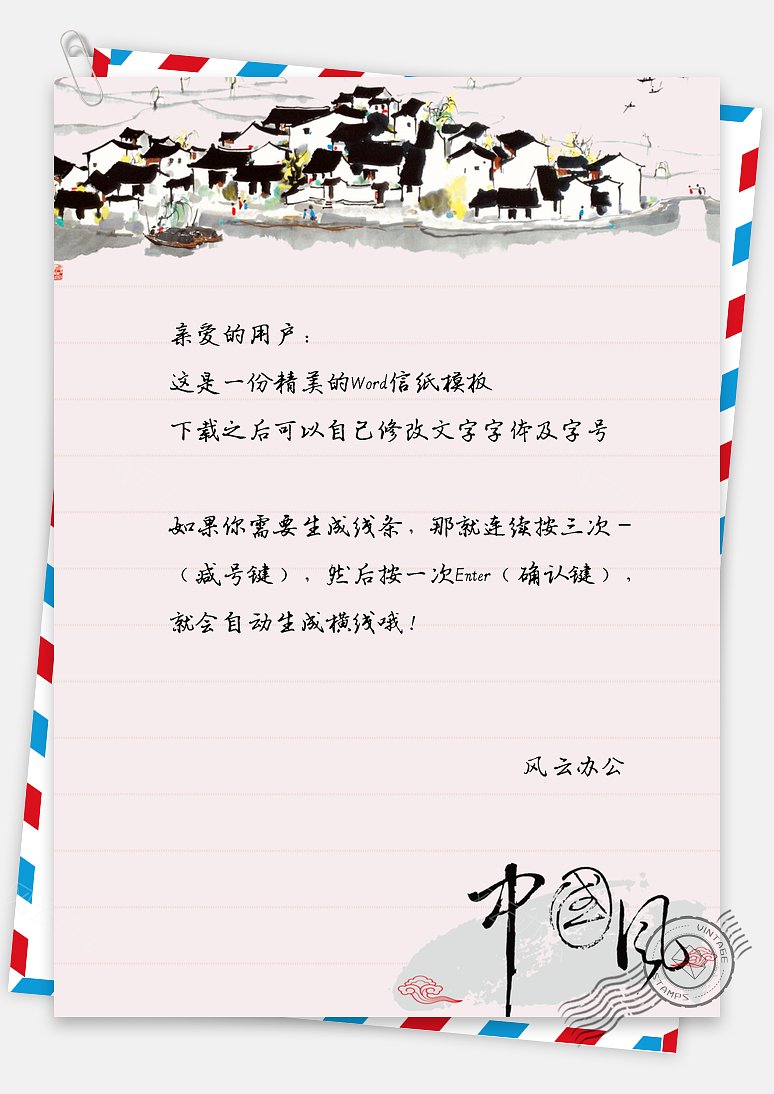 亲爱的用户：
这是一份精美的Word信纸模板
下载之后可以自己修改文字字体及字号
如果你需要生成线条，那就连续按三次－
（减号键），然后按一次Enter（确认键），
就会自动生成横线哦！
风云办公
中国风
VINTAGE
STAMPS